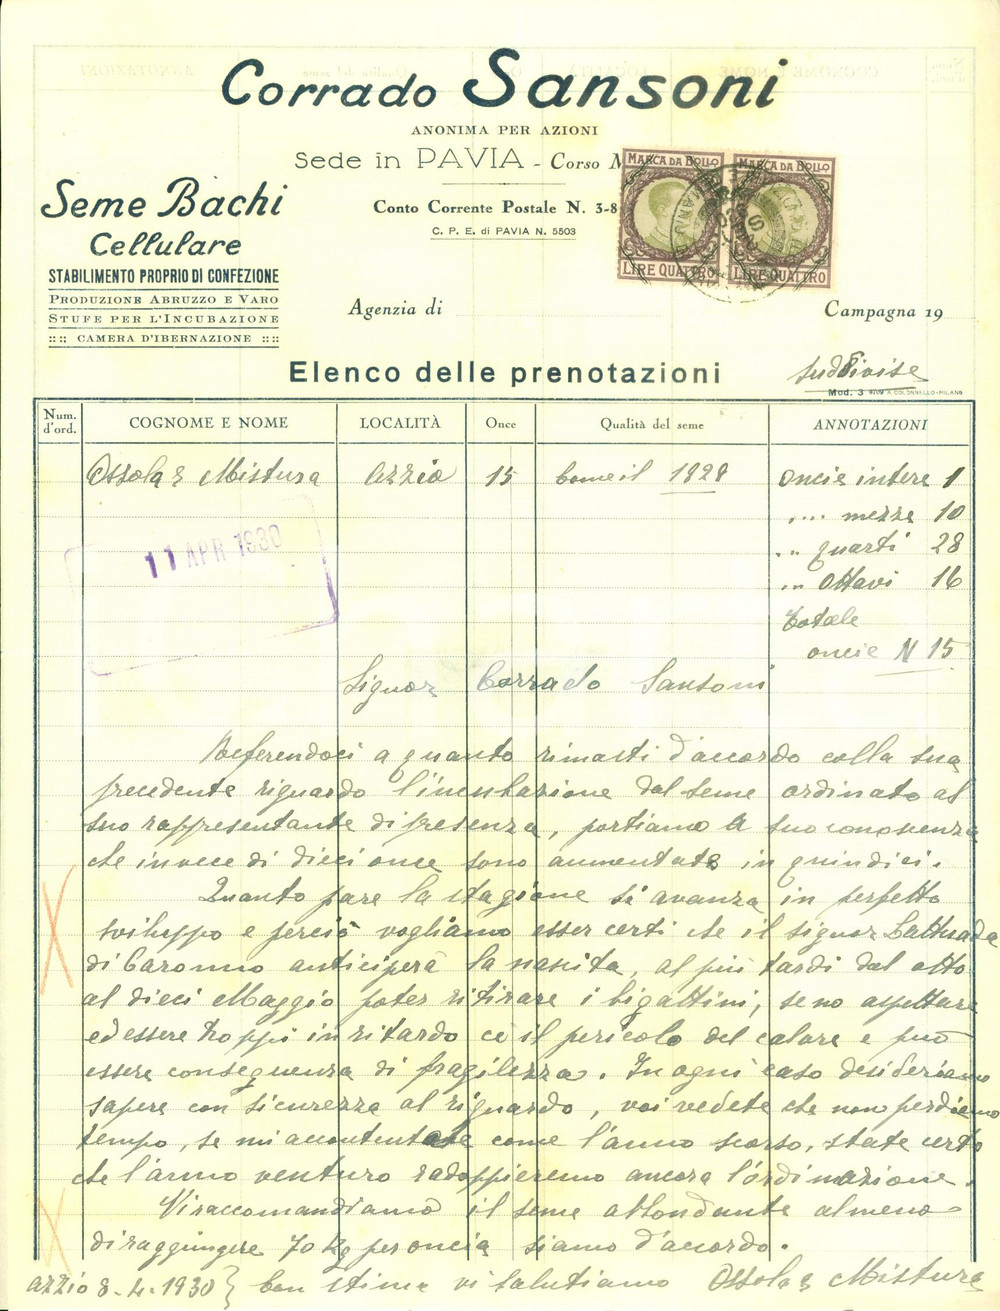 Corrado Sansoni
ANONIMA PER AZIONI
Sede in PAVIA - Corso
Conto Corrente Postale N. 3-8
C. P. E. di PAVIA N. 5503
Seme Bachi
Cellulare
STABILIMENTO PROPRIO DI CONFEZIONE
PRODUZIONE ABRUZZO E VARO
STUFE PER L'INCUBAZIONE
:: :: CAMERA D'IBERNAZIONE :: ::
MARCA DA BOLLO MARCA DA BOLLO
LIRE QUATTRO LIRE QUATTRO
Agenzia di
Campagna 19
Elenco delle prenotazioni
suddivise
Mod. 3 A COLONNELLO-MILANO
Num. d'ord. COGNOME E NOME LOCALITÀ Once Qualità del seme ANNOTAZIONI
Ossola e Mistura Azzio 15 Come il 1928 Oncie intere 1
" mezze 10
11 APR 1930
" quarti 28
in Ottavi 16
Totale
oncie N 15
Signor Corrado Sansoni
Referendoci a quanto rimasti d'accordo colla sua
precedente riguardo l'incubazione del seme ordinato al
suo rappresentante di presenza, portiamo a sua conoscenza
che invece di dieci once sono aumentate in quindici.
Quanto pare la stagione si avanza in perfetto
sviluppo e perciò vogliamo esser certi che il signor Battuada
di Caronno anticiperà la nascita, al più tardi dal otto
al dieci Maggio poter ritirare i bigattini, se no aspettare
ed essere troppi in ritardo cè il pericolo del calore e può
essere conseguenza di fragilezza. In ogni caso desideriamo
sapere con sicurezza al riguardo, voi vedete che non perdiamo
tempo, se mi accontentate come l'anno scorso, state certo
che l'anno venturo radoppieremo ancora l'ordinazione.
Vi raccomandiamo il seme abbondante almeno
di raggiungere 70 Kg per oncia siamo d'accordo.
Azzio 8-4-1930 } Con stima vi salutiamo Ossola e Mistura